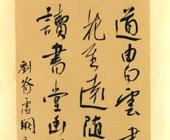 道由白雲
花至遠隨
讀書堂幽
劉昚虛